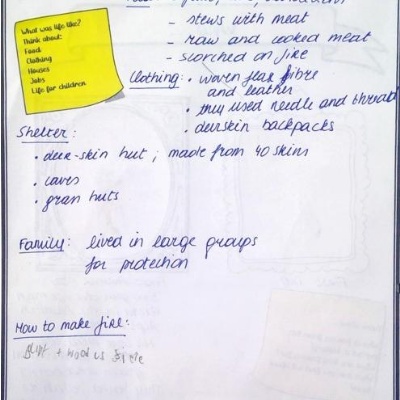 What was life like?
Think about:
Food
Clothing
Houses
Jobs
Life for children
- stews with meat
- raw and cooked meat
- scorched on fire
Clothing: • woven flax fibre
and leather
• they used needle and thread
• deerskin backpacks
Shelter:
• deer-skin hut ; made from 40 skins
• caves
• grass huts
Family: lived in large groups
for protection
How to make fire:
flint + wood